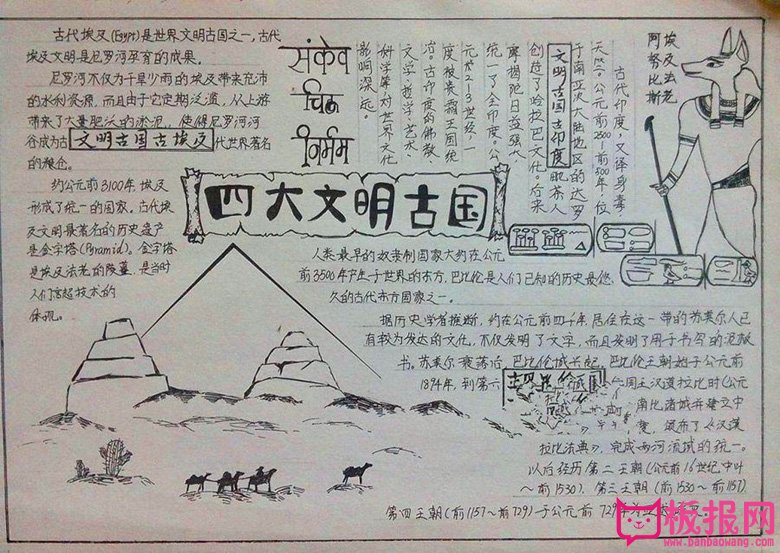 古代埃及(Egypt)是世界文明古国之一,古代
埃及文明是尼罗河孕育的成果。
尼罗河不仅为干旱少雨的埃及带来充沛
的水利资源,而且由于它定期泛滥,从上游
带来了大量肥沃的淤泥,使得尼罗河河
谷成为古文明古国古埃及代世界著名
的粮仓。
约公元前3100年,埃及
形成了统一的国家。古代埃
及文明最著名的历史遗产
是金字塔(Pyramid)。金字塔
是埃及法老的陵墓,是当时
人们高超技术的
体现。
四大文明古国
古代印度,又译身毒,
天竺。公元前2500-前500年,位
于南亚次大陆地区的达罗
文明古国古印度毗荼人
创造了哈拉巴文化。后来
摩揭陀日益强大,
统一了全印度。公
元前2-3世纪,一
度被贵霜王国统
治。古印度的佛教、
文学、哲学、艺术、
科学等对世界文化
影响深远。
埃及法老
阿努比斯
人类最早的奴隶制国家大约在公元
前3500年产生于世界的东方,巴比伦是人们已知的历史最悠
久的古代东方国家之一。
据历史学者推断,约在公元前四千年,居住在这一带的苏美尔人已
有较为发达的文化,不仅发明了文字,而且发明了用于书写的泥板
书。苏美尔衰落后,巴比伦城兴起,巴比伦王朝始于公元前
1894年,到第六
国王汉漠拉比时(公元
南比诸城并建立中
颁布了《汉漠
拉比法典》,完成两河流域的统一。
以后经历第二王朝(公元前16世纪中叶
~前1530)、第三王朝(前1530~前1157)、
第四王朝(前1157~前729)于公元前729年为
板报网
www.banbaowang.com